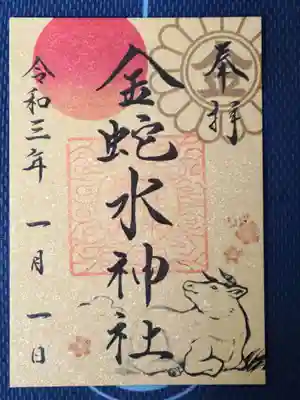 奉拝
金
金蛇水神社
令和三年 一月 一日